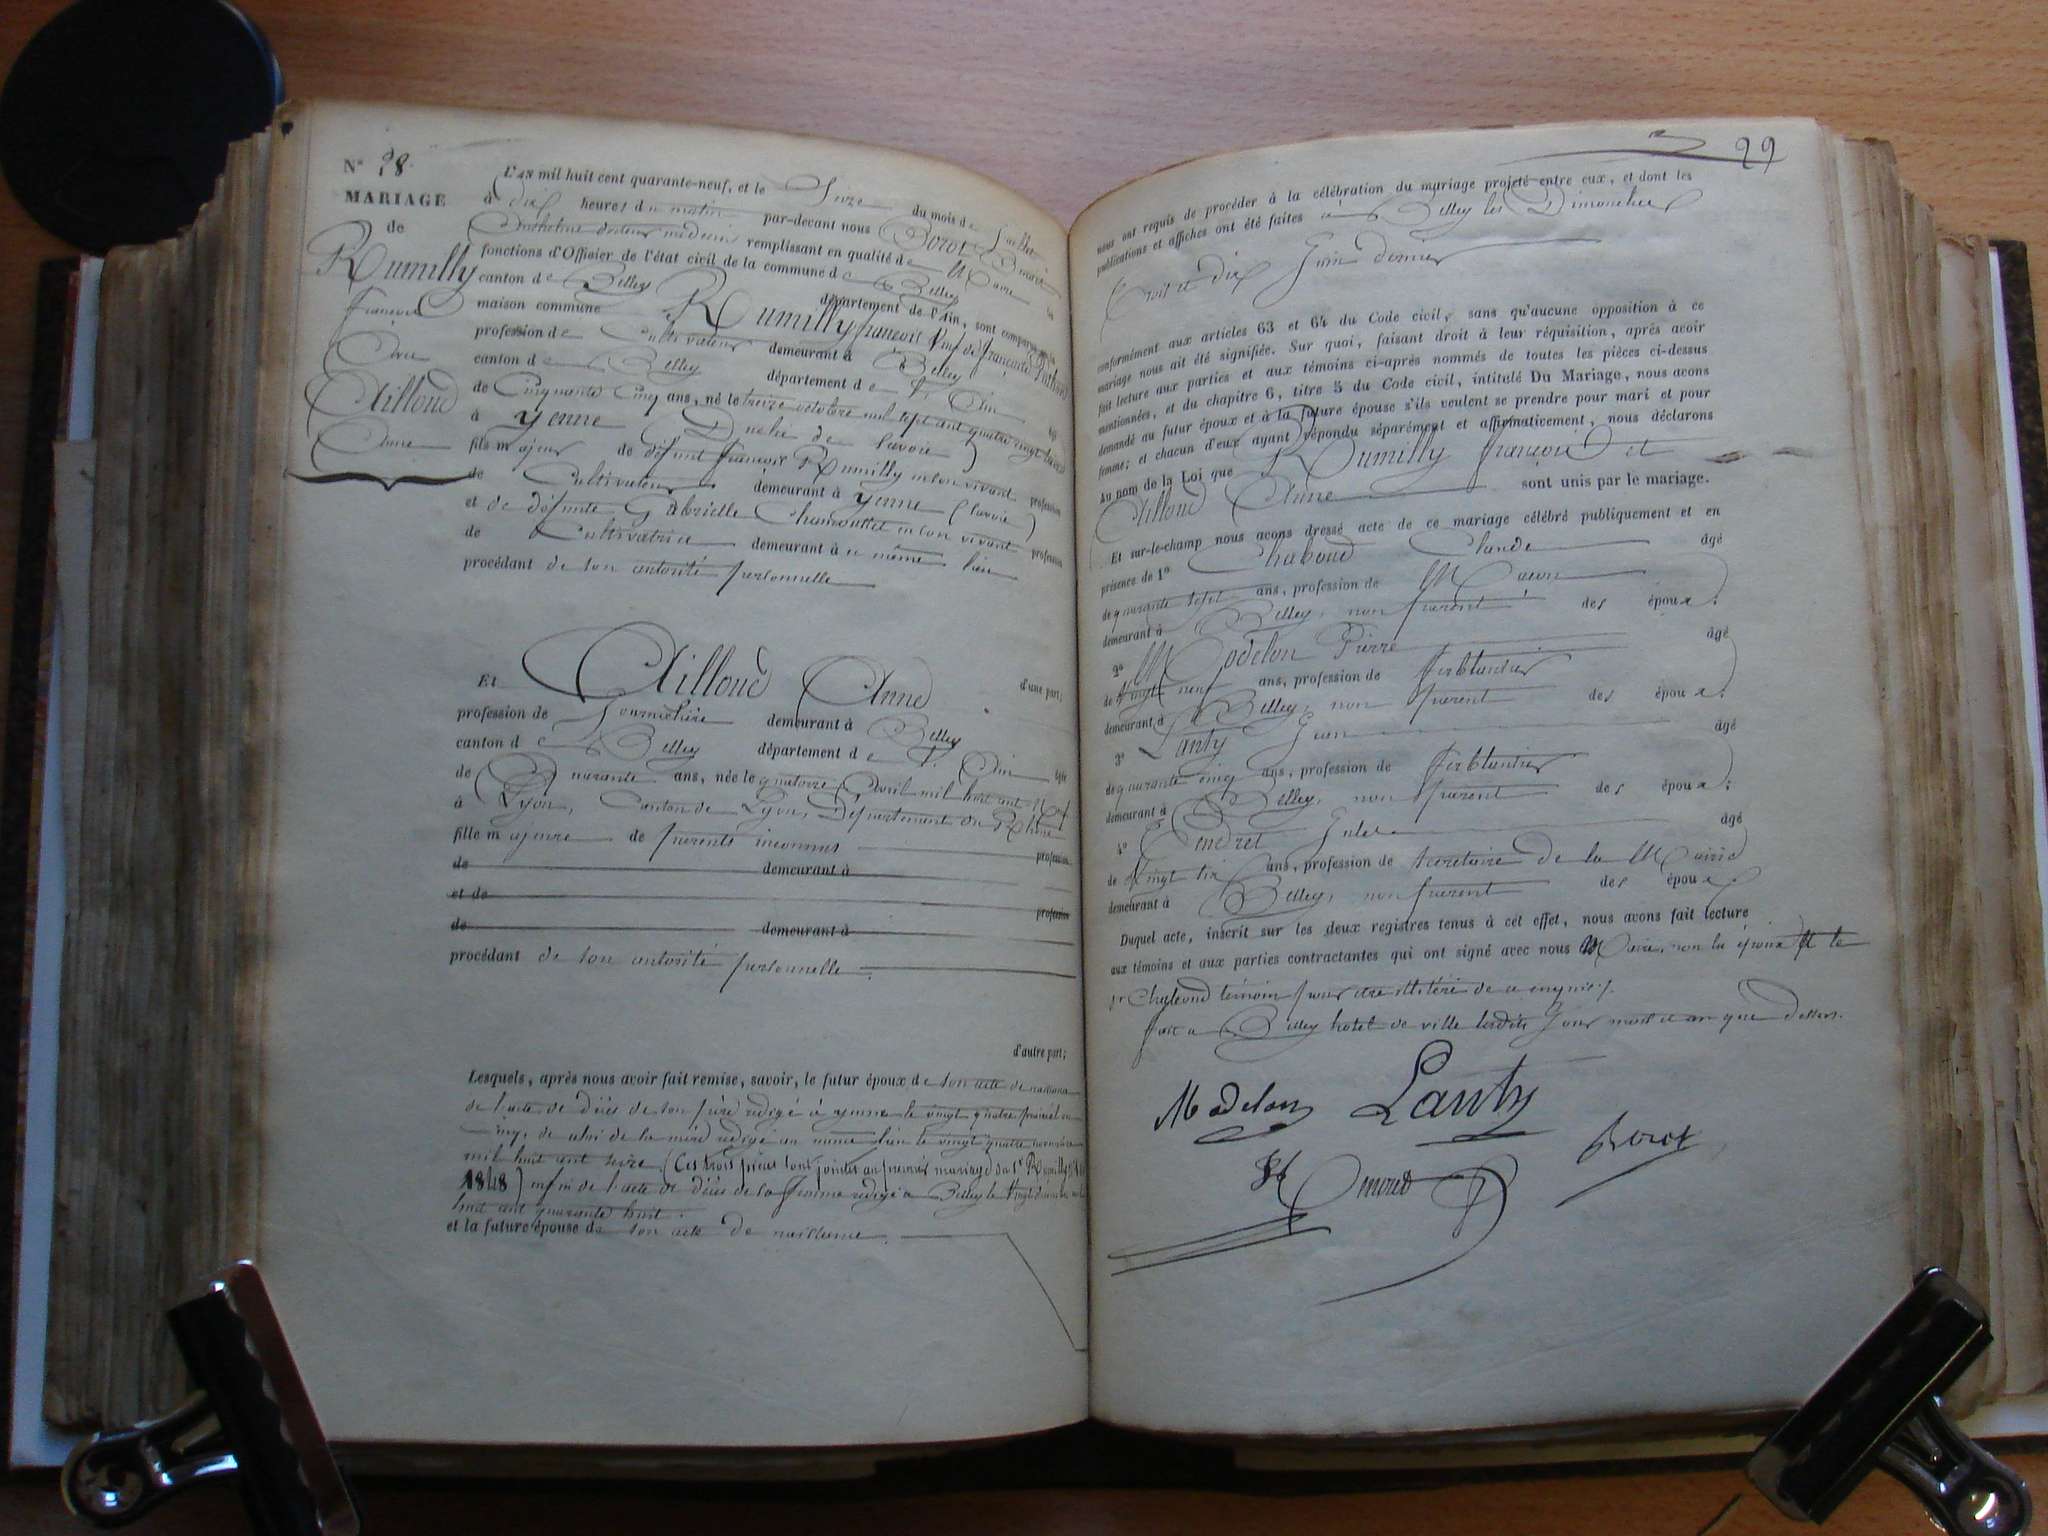 N° 28
MARIAGE
de
Rumilly
François
Avec
Ailloud
Anne
L'an mil huit cent quarante-neuf, et le Onze du mois de Juillet
à dix heures du matin par-devant nous Borot
docteur médecin remplissant en qualité de Maire les
fonctions d'Officier de l'état civil de la commune de Belley
canton de Belley département de l'Ain, sont comparus en la
maison commune Rumilly françois veuf de françoise
profession de Cultivateur demeurant à Belley
canton de Belley département de l'Ain
de Cinquante Cinq ans, né le treize octobre mil sept cent quatre vingt treize
à Yenne Duché de Savoie
fils majeur de défunt françois Rumilly en son vivant profession
de Cultivateur demeurant à Yenne (Savoie)
et de défunte Gabrielle Chamoussel en son vivant profession
de Cultivatrice demeurant à ce même lieu
procédant de son autorité personnelle
d'une part;
Et Ailloud Anne
profession de Journalière demeurant à Belley
canton de Belley département de l'Ain âgée
de Quarante ans, née le quatorze Avril mil huit cent Neuf
à Lyon, Canton de Lyon, Département du Rhône
fille majeure de parents inconnus profession
de demeurant à
et de profession
de demeurant à
procédant de son autorité personnelle
d'autre part;
Lesquels, après nous avoir fait remise, savoir, le futur époux de son acte de naissance
de l'acte de décès de son père rédigé à yenne le vingt quatre prairial an
cinq, de celui de sa mère rédigé au même lieu le vingt quatre novembre
mil huit cent seize (Ces trois pièces sont jointes au premier mariage du Sr Rumilly
1848) enfin de l'acte de décès de sa femme rédigé à Belley le vingt mil
huit cent quarante huit.
et la future épouse de son acte de naissance.
29
nous ont requis de procéder à la célébration du mariage projeté entre eux, et dont les
publications et affiches ont été faites à Belley les Dimanches
trois et dix Juin dernier
conformément aux articles 63 et 64 du Code civil, sans qu'aucune opposition à ce
mariage nous ait été signifiée. Sur quoi, faisant droit à leur réquisition, après avoir
fait lecture aux parties et aux témoins ci-après nommés de toutes les pièces ci-dessus
mentionnées, et du chapitre 6, titre 5 du Code civil, intitulé Du Mariage, nous avons
demandé au futur époux et à la future épouse s'ils veulent se prendre pour mari et pour
femme; et chacun d'eux ayant répondu séparément et affirmativement, nous déclarons
au nom de la Loi que Rumilly françois et
Ailloud Anne sont unis par le mariage.
Et sur-le-champ nous avons dressé acte de ce mariage célébré publiquement et en
présence de 1° Chaboud Claude âgé
de quarante sept ans, profession de Maçon
demeurant à Belley, non parent des époux;
2° Modelon Pierre âgé
de Vingt neuf ans, profession de ferblantier
demeurant à Belley, non parent des époux;
3° Lanty Jean âgé
de quarante cinq ans, profession de ferblantier
demeurant à Belley, non parent des époux;
4° Jules âgé
de Vingt six ans, profession de Secrétaire de la Mairie
demeurant à Belley, non parent des époux.
Duquel acte, inscrit sur les deux registres tenus à cet effet, nous avons fait lecture
aux témoins et aux parties contractantes qui ont signé avec nous Maire, non la épouse et le
Sr Chaboud témoin pour être illitéré de ce enquis.
fait à Belley hotel de ville lesdits Jour mois et an que dessus.
Modelon Lanty
Borot